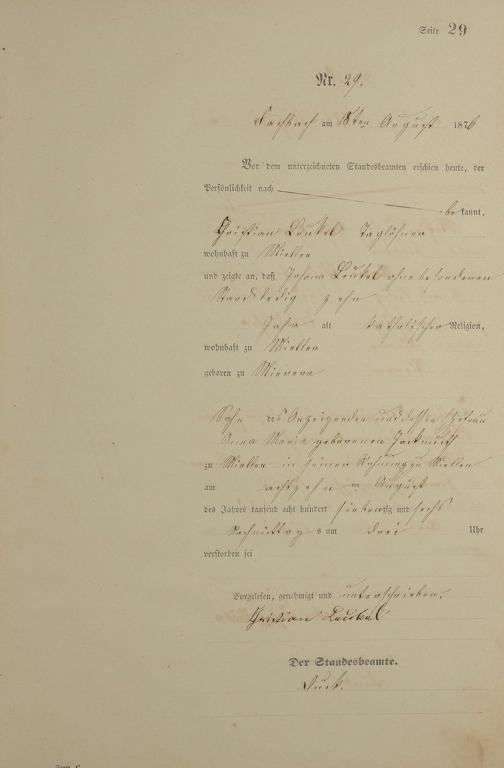 Seite 29
Nr. 29.
Fachbach am 18ten August 1876
Vor dem unterzeichneten Standesbeamten erschien heute, der
Persönlichkeit nach
bekannt,
Christian Leukel Taglöhner
wohnhaft zu Miellen
und zeigte an, daß Johann Leukel ohne besonderen
Stand ledig zehn
Jahre alt katholischer Religion,
wohnhaft zu Miellen
geboren zu
Sohn des Anzeigenden und dessen Ehefrau
Anna Maria geborenen
zu Miellen in seiner Wohnung zu Miellen
am achtzehn ten August
des Jahres tausend acht hundert siebenzig und sechs
Nachmittags um drei Uhr
verstorben sei
Vorgelesen, genehmigt und unterschrieben.
Christian Leukel
Der Standesbeamte.